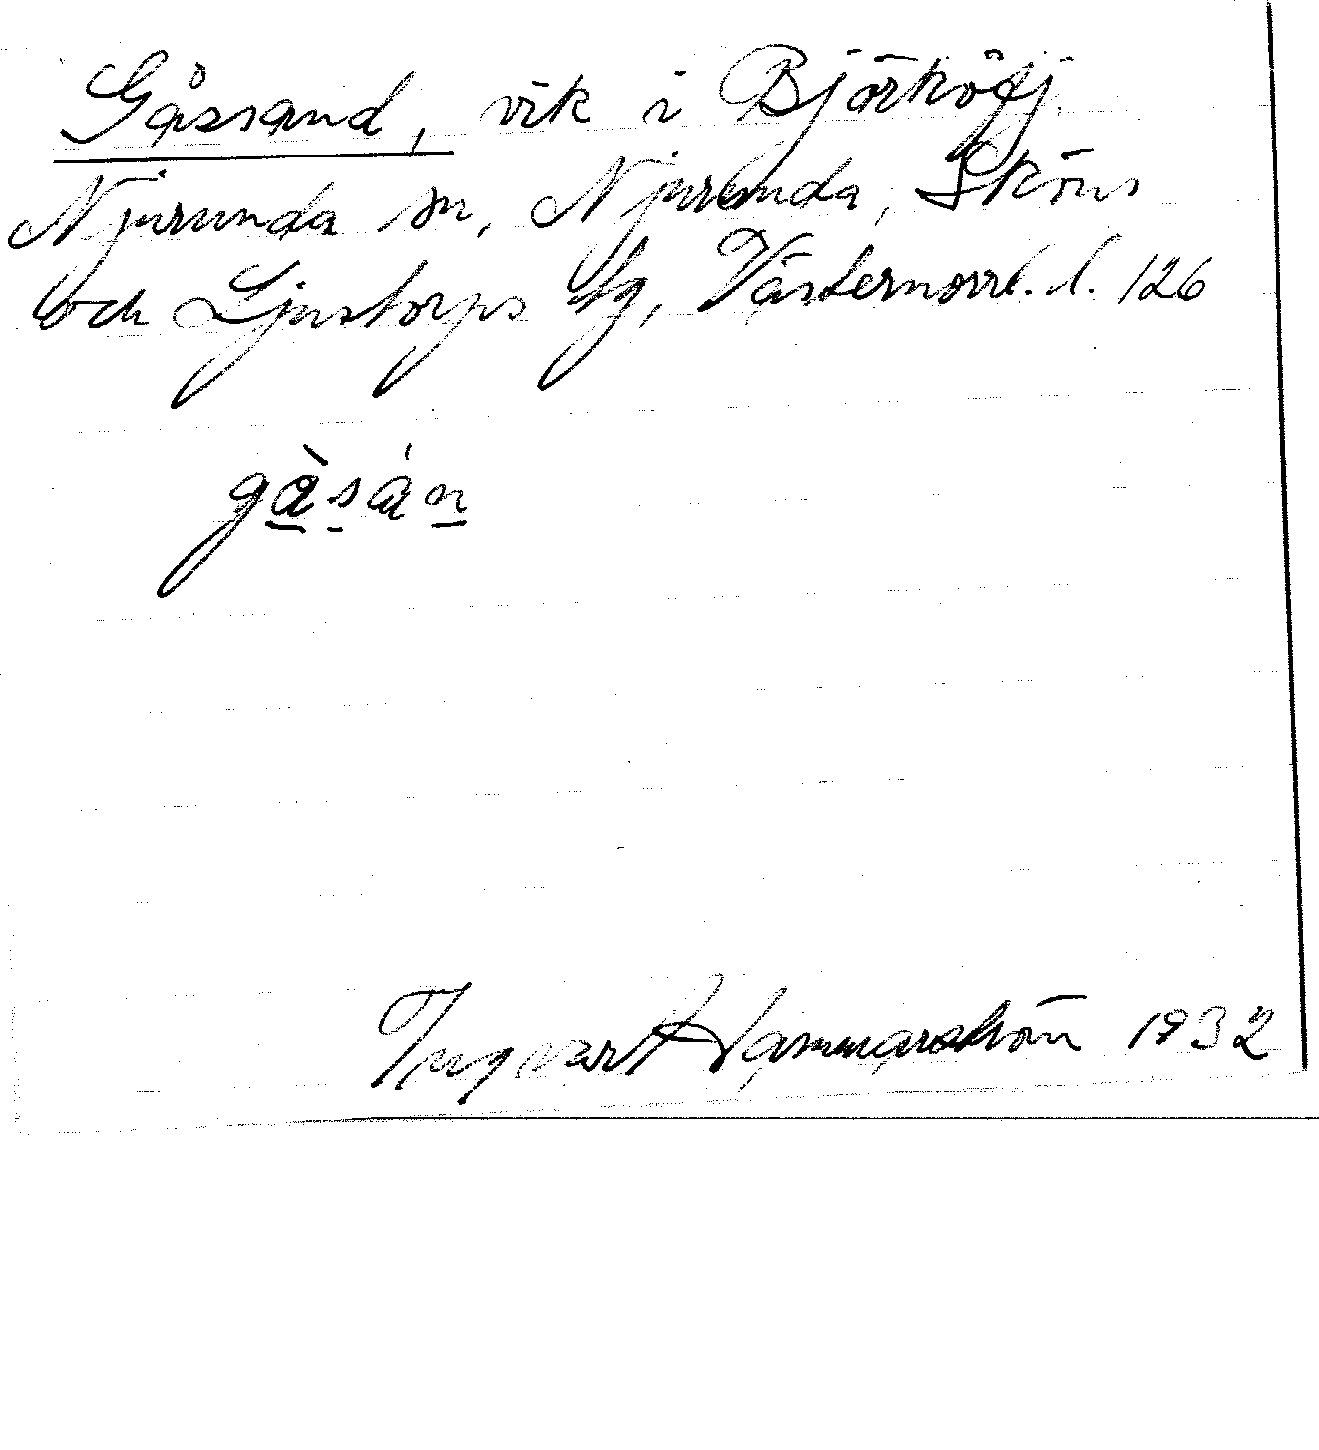 Gåssand, vik i Björköfj.
Njurunda sn, Njurunda, Sköns
och Ljustorps tg, Västernorrl. l. 126
gàsán
Ingvar Hammarström 1932